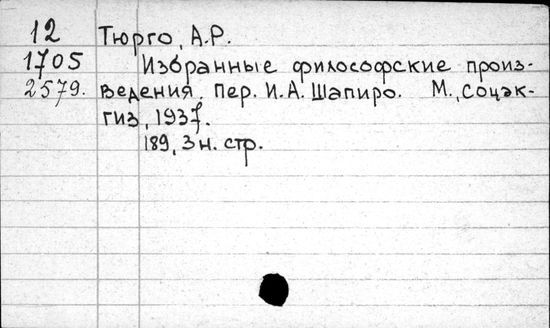 12 Тюрго, А.Р.
1705 Избранные философские произ-
2579. ведения. Пер. И.А. Шапиро. М., Соцэк-
гиз, 1937.
189, 3 н. стр.